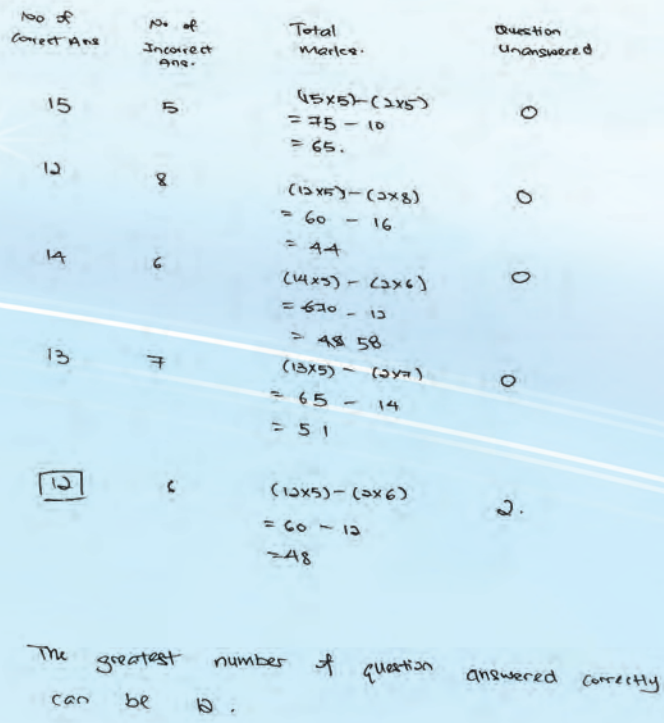 No of Correct Ans No of Incorrect Ans. Total Marks. Question Unanswered
15 5 (15x5)-(2x5) 0
= 75 - 10
= 65.
12 8 (12x5)-(2x8) 0
= 60 - 16
= 44
14 6 (14x5) - (2x6) 0
= 70 - 12
= 58
13 7 (13x5) - (2x7) 0
= 65 - 14
= 51
12 6 (12x5)-(2x6) 2.
= 60 - 12
=48
The greatest number of question answered correctly
can be 12.